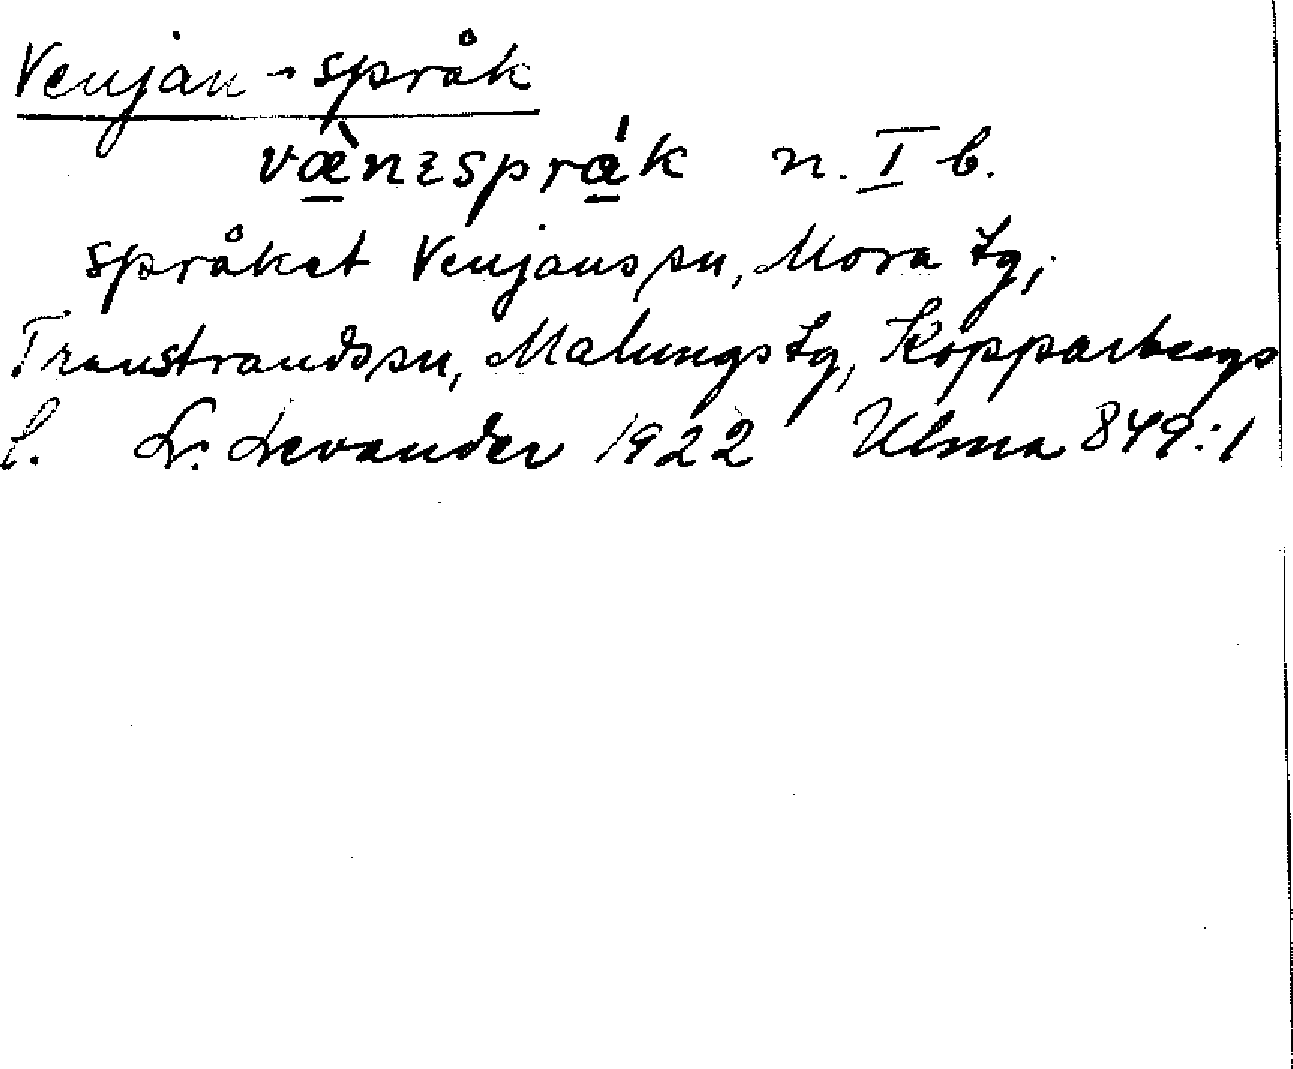 Venjan-språk
væ̀nɛsprá̱k n. I b.
språket Venjans sn, Mora tg,
Transtrands sn, Malungs tg, Kopparbergs
l. L. Levander 1922 Ulma 849:1